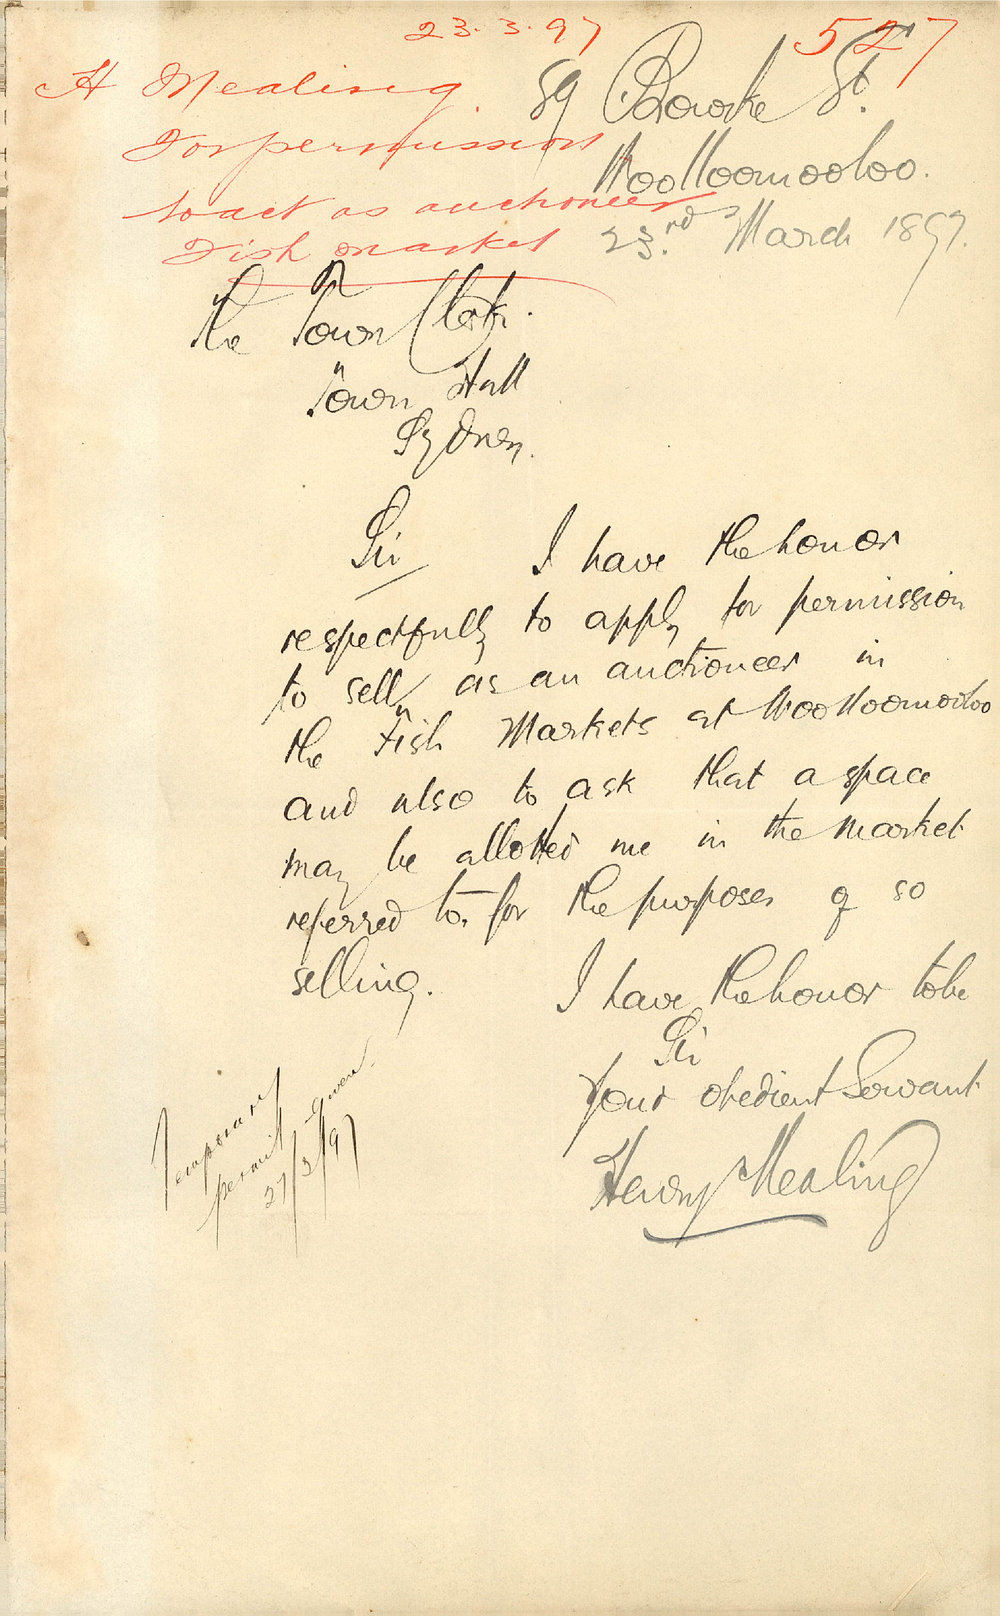 23.3.97
527
H Mealing
For permission
to act as auctioneer
Fish market
89 Bourke St.
Woolloomooloo.
23rd March 1897.
The Town Clerk.
Town Hall
Sydney.
Sir I have the honor
respectfully to apply for permission
to sell as an auctioneer in
the Fish Markets at Woolloomooloo
and also to ask that a space
may be allotted me in the market
referred to, for the purposes of so
selling.
I have the honor to be
Sir
Your obedient Servant
Henry Mealing
Temporary
permit given.
27/3/97